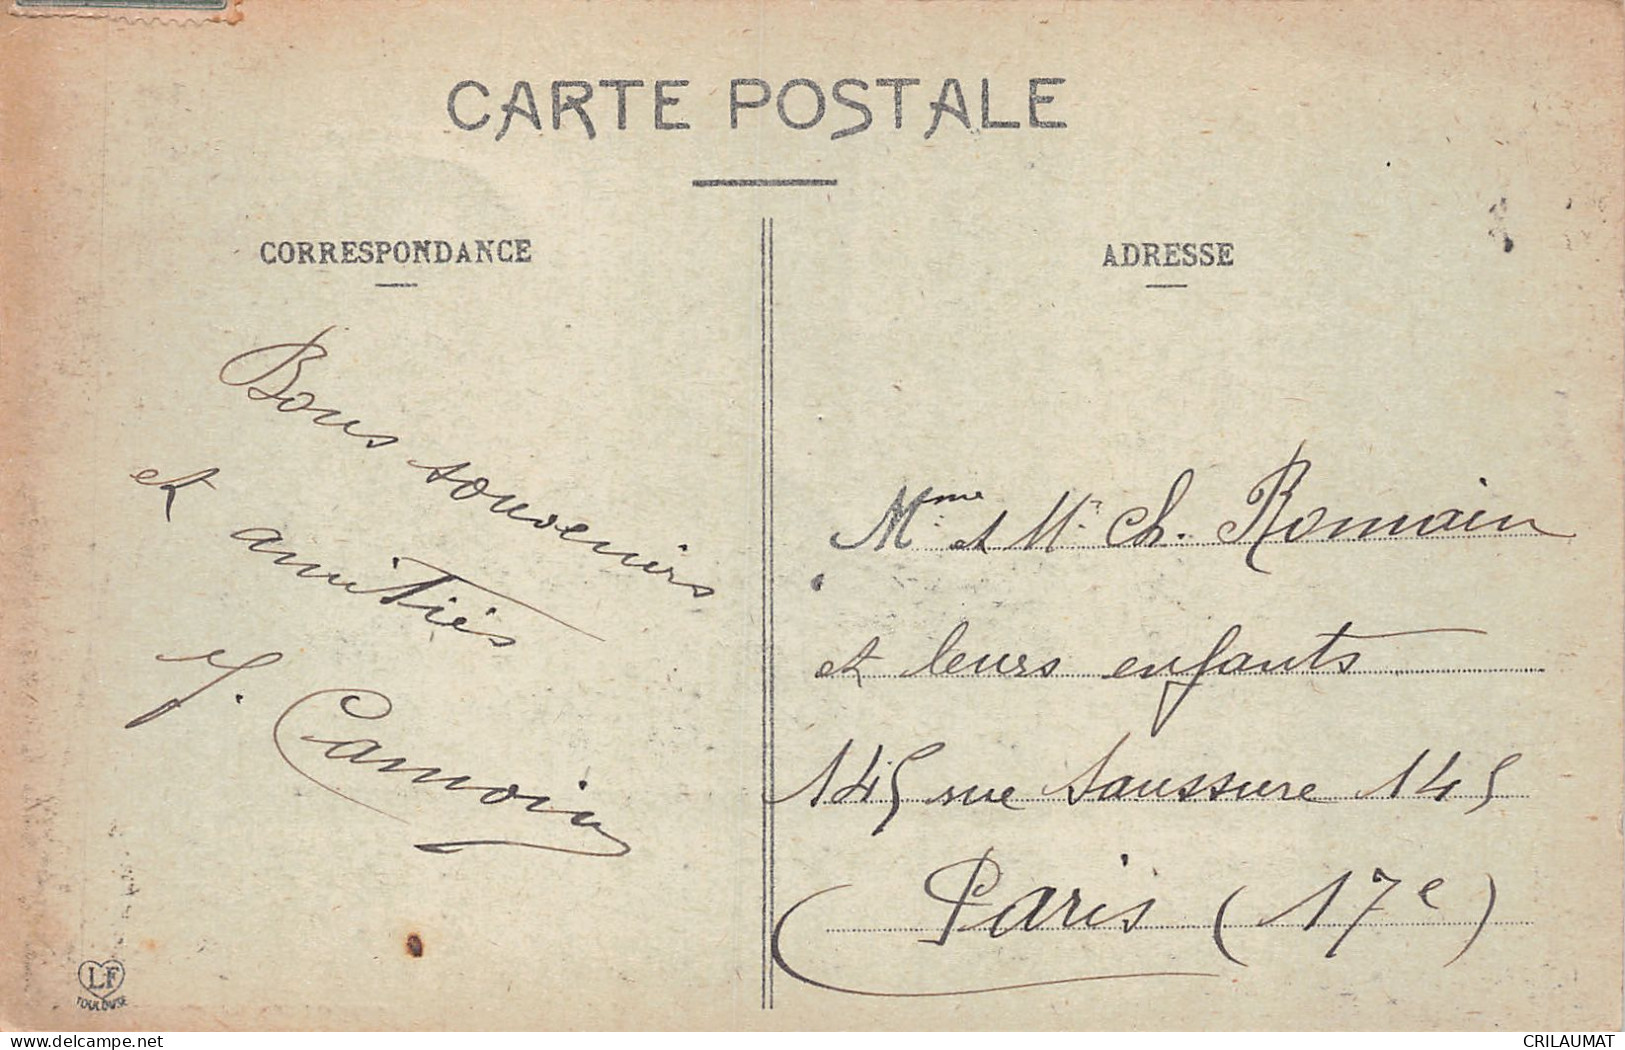 CARTE POSTALE
CORRESPONDANCE
Bons souvenirs
et amitiés
J. Camoin
ADRESSE
Mme et Mr Ch. Romain
et leurs enfants
145 rue Saussure 145
Paris (17e)
LF
TOULOUSE
delcampe.net
CRILAUMAT